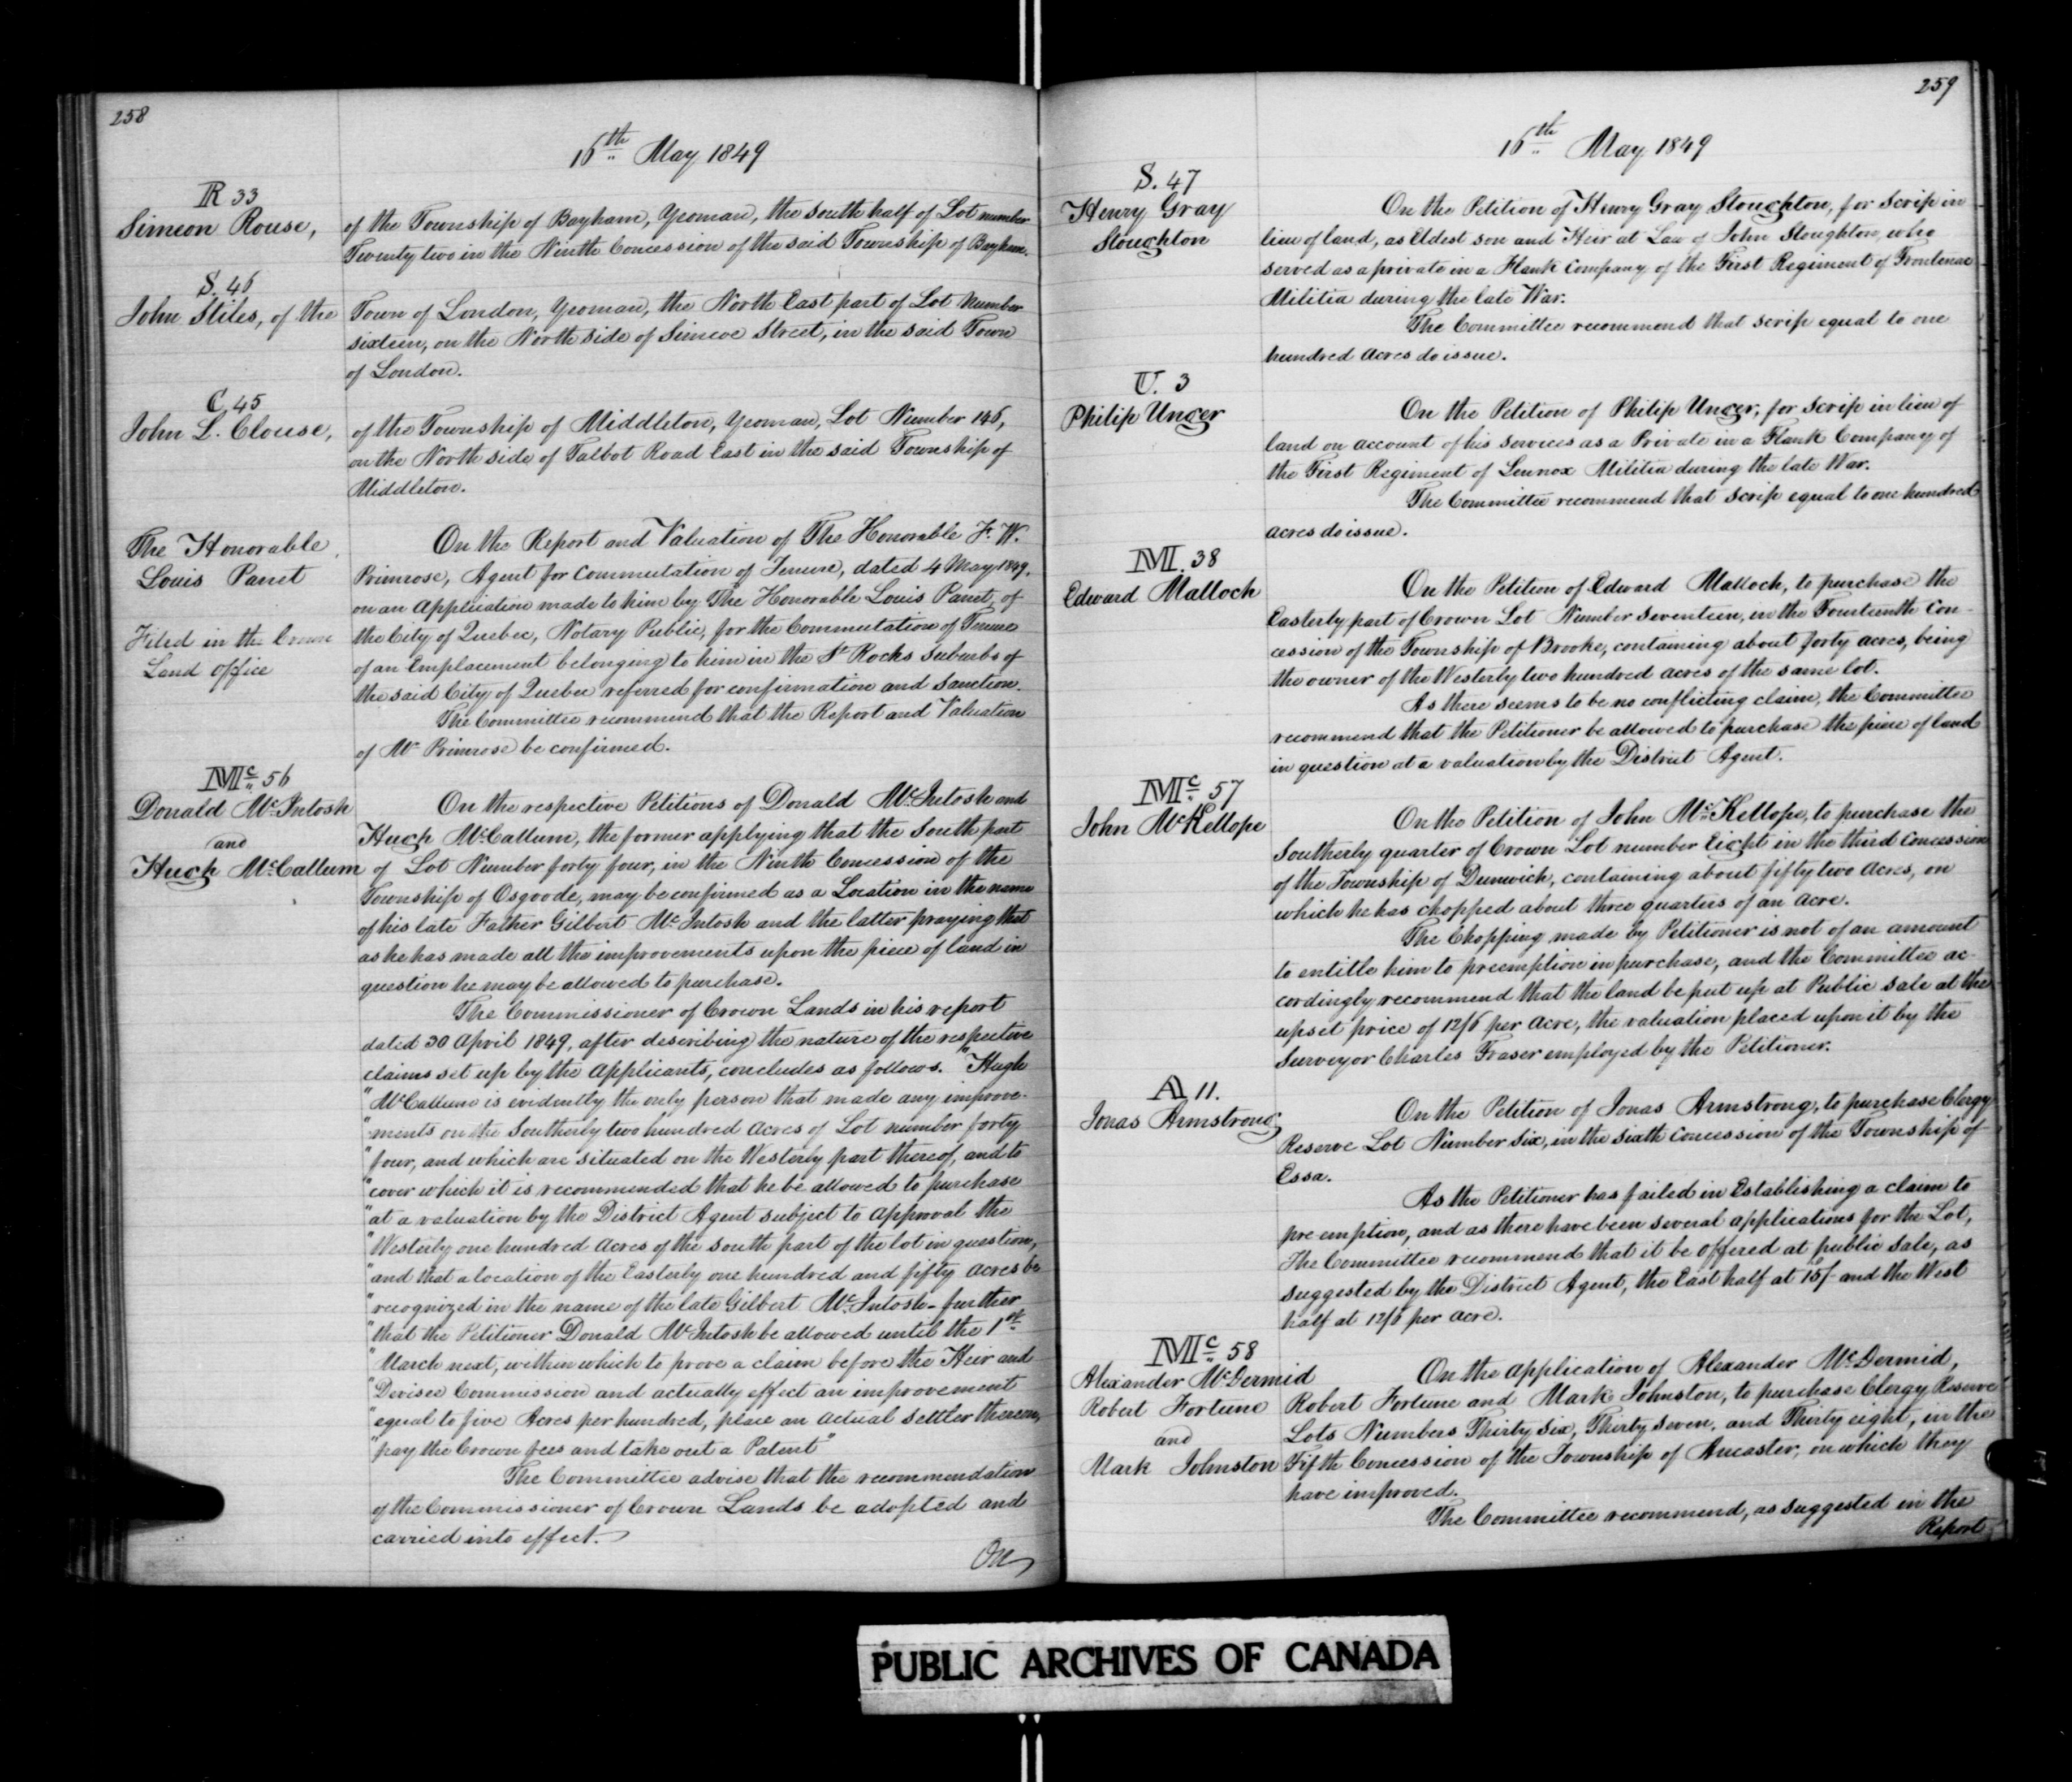 258
16th May 1849
R 33
Simeon Rouse, of the Township of Bayham, Yeoman, the South half of Lot number
Twenty two in the Ninth Concession of the said Township of Bayham.
S. 46
John Stiles, of the Town of London, Yeoman, the North East part of Lot Number
sixteen, on the North side of Simcoe Street, in the said Town
of London.
C 45
John L. Clouse, of the Township of Middleton, Yeoman, Lot Number 146,
on the North side of Talbot Road East in the said Township of
Middleton.
The Honorable
Louis Panet
Filed in the Crown
Land Office
On the Report and Valuation of The Honorable F. W.
Primrose, Agent for Commutation of Tenure, dated 4 May 1849,
on an application made to him by The Honorable Louis Panet, of
the City of Quebec, Notary Public, for the Commutation of Tenure
of an Emplacement belonging to him in the St Rocks Suburbs of
the said City of Quebec referred for confirmation and Sanction.
The Committee recommend that the Report and Valuation
of Mr Primrose be confirmed.
Mc 56
Donald McIntosh
and
Hugh McCallum
On the respective Petitions of Donald McIntosh and
Hugh McCallum, the former applying that the South part
of Lot Number forty four, in the Ninth Concession of the
Township of Osgoode, may be confirmed as a Location in the name
of his late Father Gilbert McIntosh and the latter praying that
as he has made all the improvements upon the piece of land in
question he may be allowed to purchase.
The Commissioner of Crown Lands in his report
dated 30 April 1849, after describing the nature of the respective
claims set up by the Applicants, concludes as follows. "Hugh
"McCallum is evidently the only person that made any improve-
"ments on the Southerly two hundred Acres of Lot number forty
"four, and which are situated on the Westerly part thereof, and to
"cover which it is recommended that he be allowed to purchase
"at a valuation by the District Agent subject to approval the
"Westerly one hundred Acres of the south part of the lot in question,
"and that a location of the Easterly one hundred and fifty Acres be
"recognized in the name of the late Gilbert McIntosh - further
"that the Petitioner Donald McIntosh be allowed until the 1st
"March next, within which to prove a claim before the Heir and
"Devisee Commission and actually effect an improvement
"equal to five Acres per hundred, place an actual settler thereon,
"pay the Crown fees and take out a Patent"
The Committee advise that the recommendation
of the Commissioner of Crown Lands be adopted and
carried into effect.
On
259
16th May 1849
S. 47
Henry Gray
Stoughton
On the Petition of Henry Gray Stoughton, for Scrip in
lieu of land, as Eldest son and Heir at Law of John Stoughton, who
served as a private in a Flank Company of the First Regiment of Frontenac
Militia during the late War.
The Committee recommend that scrip equal to one
hundred Acres do issue.
U. 3
Philip Unger
On the Petition of Philip Unger, for Scrip in lieu of
land on account of his services as a Private in a Flank Company of
the First Regiment of Lennox Militia during the late War.
The Committee recommend that Scrip equal to one hundred
acres do issue.
M. 38
Edward Malloch
On the Petition of Edward Malloch, to purchase the
Easterly part of Crown Lot Number Seventeen, in the Fourteenth Con-
cession of the Township of Brooke, containing about forty acres, being
the owner of the Westerly two hundred acres of the same lot.
As there seems to be no conflicting claim, the Committee
recommend that the Petitioner be allowed to purchase the piece of land
in question at a valuation by the District Agent.
Mc 57
John McKellope
On the Petition of John McKellope, to purchase the
Southerly quarter of Crown Lot number Eight in the third Concession
of the Township of Dunwich, containing about fifty two Acres, on
which he has chopped about three quarters of an Acre.
The Chopping made by Petitioner is not of an amount
to entitle him to preemption in purchase, and the Committee ac-
cordingly recommend that the land be put up at Public sale at the
upset price of 12/6 per Acre, the valuation placed upon it by the
Surveyor Charles Fraser employed by the Petitioner.
A 11.
Jonas Armstrong
On the Petition of Jonas Armstrong, to purchase Clergy
Reserve Lot Number Six, in the sixth Concession of the Township of
Essa.
As the Petitioner has failed in Establishing a claim to
pre emption, and as there have been several applications for the Lot,
The Committee recommend that it be offered at public Sale, as
suggested by the District Agent, the East half at 15/- and the West
half at 12/6 per acre.
Mc 58
Alexander McDermid
Robert Fortune
and
Mark Johnston
On the application of Alexander McDermid,
Robert Fortune and Mark Johnston, to purchase Clergy Reserve
Lots Numbers Thirty Six, Thirty Seven, and Thirty eight, in the
Fifth Concession of the Township of Ancaster, on which they
have improved.
The Committee recommend, as suggested in the
Report
PUBLIC ARCHIVES OF CANADA